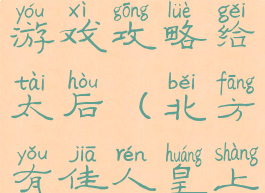 yóu xì gōng lüè gěi
游戏攻略给
tài hòu běi fāng
太后(北方
yǒu jiā rén huáng shàng
有佳人皇上